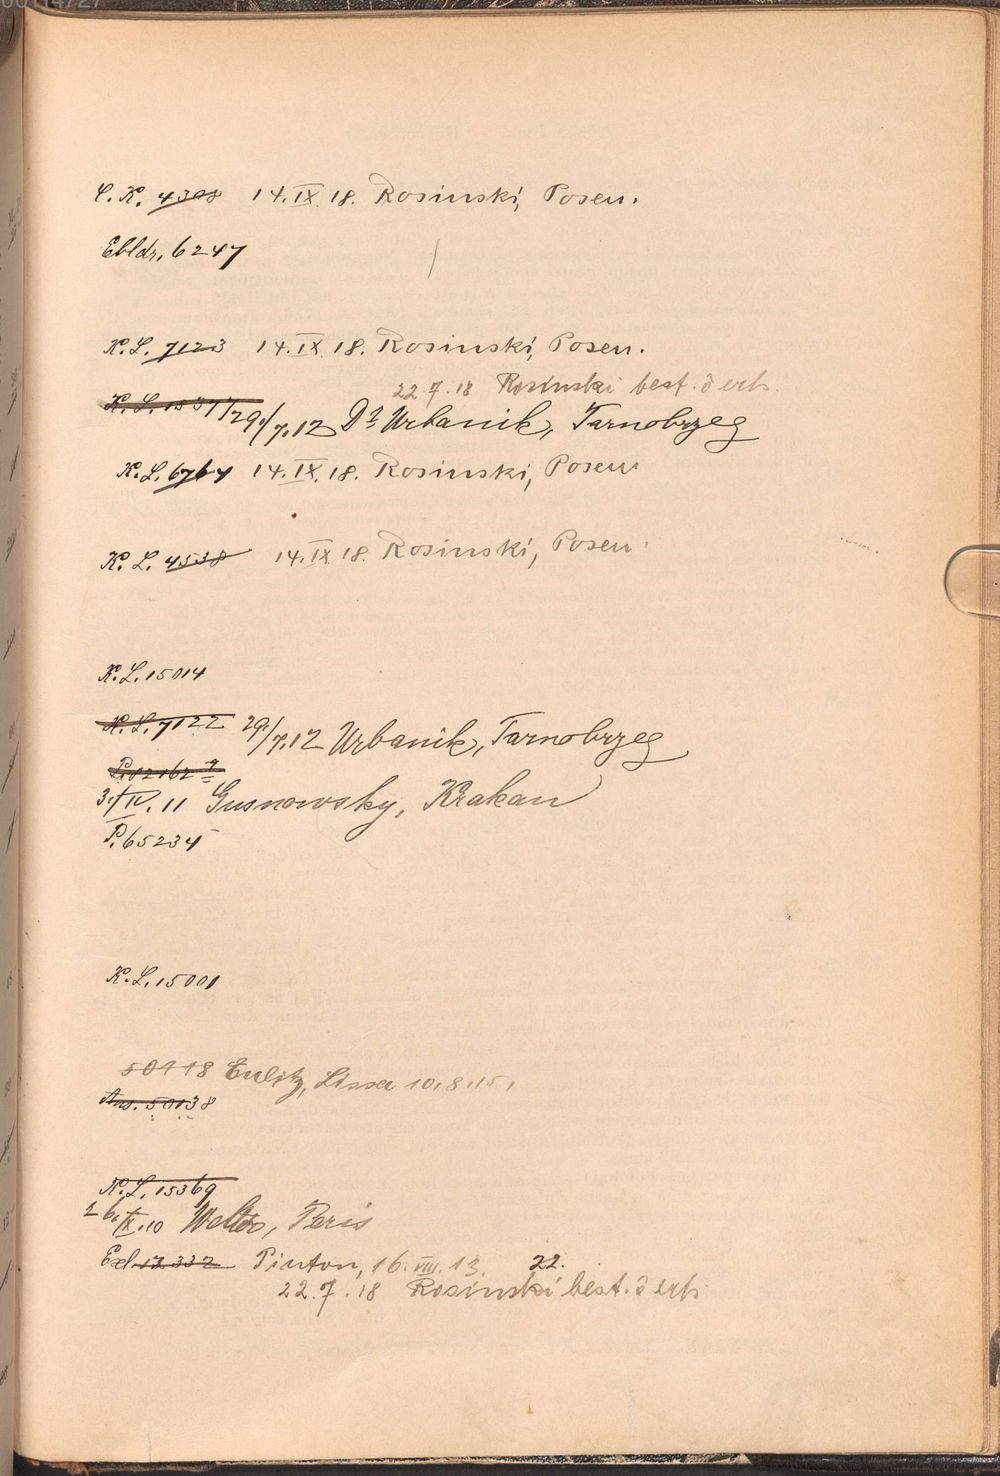 C. K. 4308 14.IX.18. Rosinski, Posen.
Ebldr. 6247
K. L. 7123 14.IX.18. Rosinski, Posen.
22.7.18 Rosinski best. d erh.
K. L. 15377 29/7.12 Dr Urbanik, Tarnobrzeg
K. L. 6764 14.IX.18. Rosinski, Posen
K. L. 4538 14.IX.18. Rosinski, Posen.
K. L. 15014
K. L. 7122 29/7.12 Urbanik, Tarnobrzeg
IV. 11 Gusnowsky, Krakau
P. 65234
K. L. 15001
50118 Eulitz, Lissa 10.8.15.
Aus. 50138
K. L. 15369
26. IX. 10 Welter, Paris
Exl 12 332 Pinton, 16. VIII. 13. 22.
22.7.18 Rosinski best. d erh.